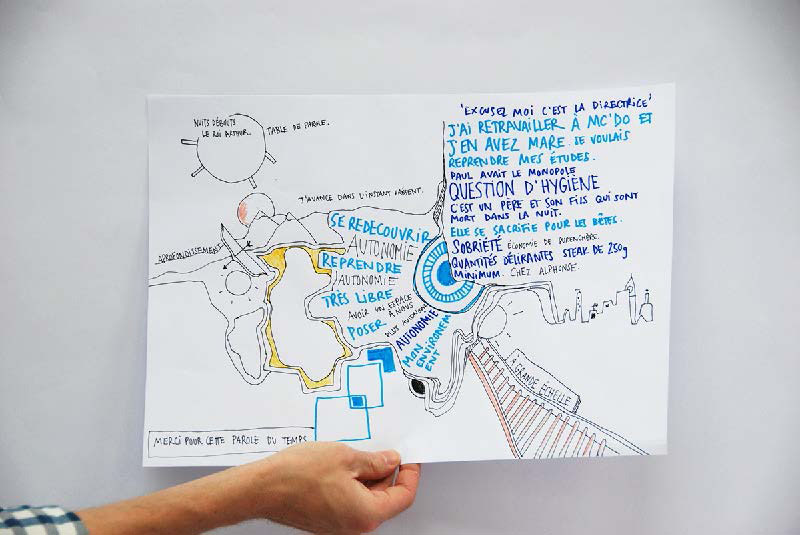 NUITS DEBOUTS
LE ROI ARTHUR...
TABLE DE PAROLE.
"EXCUSEZ MOI C'EST LA DIRECTRICE"
J'AI RETRAVAILLER À MC'DO ET
J'EN AVEZ MARE. JE VOULAIS
REPRENDRE MES ÉTUDES.
PAUL AVAIT LE MONOPOLE
QUESTION D'HYGIÈNE
C'EST UN PÈRE ET SON FILS QUI SONT
MORT DANS LA NUIT.
ELLE SE SACRIFIE POUR LES BÊTES.
SOBRIÉTÉ ÉCONOMIE DE
QUANTITÉS DÉLIRANTES STEAK DE 250g
MINIMUM. CHEZ ALPHONSE.
J'AVANCE DANS L'INSTANT PRÉSENT.
APPROFONDISSEMENT
SE REDECOUVRIR
AUTONOMIE
REPRENDRE
AUTONOMIE
TRÈS LIBRE
AVOIR UN ESPACE
À NOUS
POSER
PLUS
AUTONOMIE
MON
ENVIRONEM
ENT
GRANDE ÉCHELLE
MERCI POUR CETTE PAROLE DU TEMPS